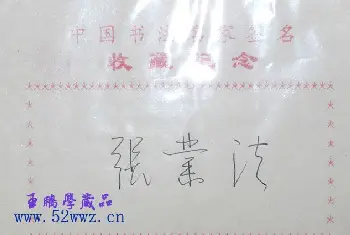 中国书法名家签名
收藏纪念
張業法
王鹏學藏品
www.52wwz.cn